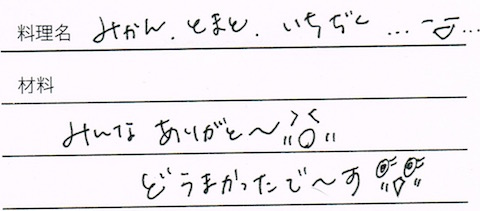 料理名 みかん.とまと.いちぢく ... ...
材料
みんな ありがと〜
どうまかったで〜す